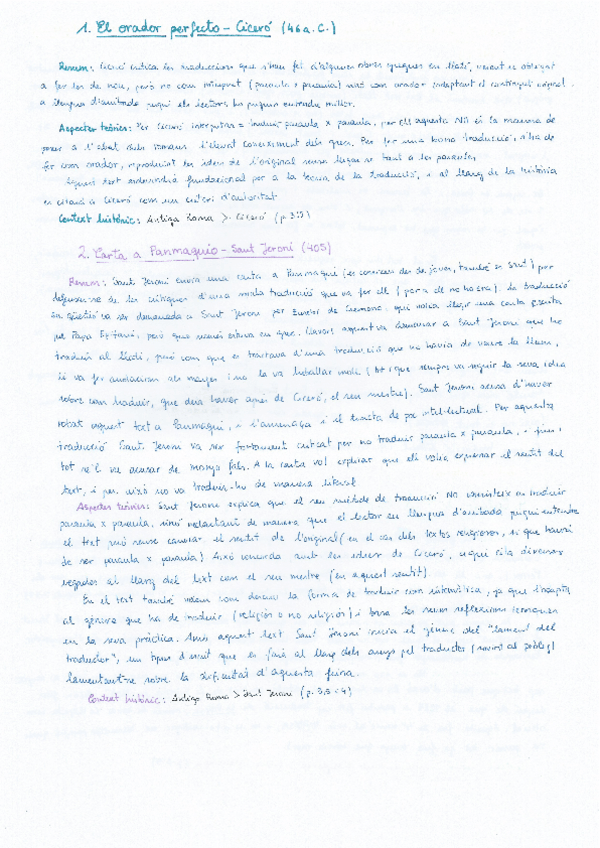 1. El orador perfecto - Ciceró (46 a.C.)
Resum: Ciceró critica les traduccions que s'han fet d'algunes obres gregues en llatí, veient-se obligat
a fer-les de nou, però no com intèrpret (paraula x paraula) sinó com orador adaptant el contingut original
a llengua d'arribada perquè els lectors ho puguin entendre millor.
Aspectes teòrics: Per Ciceró interpretar = traduir paraula x paraula, per ell aquesta NO és la manera de
posar a l'abast dels romans l'elevat coneixement dels grecs. Per fer una bona traducció, s'ha de
fer com orador, reproduint les idees de l'original sense lligar-se tant a les paraules.
Aquest text esdevindrà fundacional per a la teoria de la traducció, i al llarg de la història
es citarà a Ciceró com un criteri d'autoritat.
Context històric: Antiga Roma > Ciceró (p. 3)
2. Carta a Panmaquio - Sant Jeroni (405)
Resum: Sant Jeroni envia una carta a Panmaqui (es coneixen des de joves, també és Sant) per
defensar-se de les crítiques d'una mala traducció que va fer ell (per a ell no ho era). La traducció
en qüestió va ser demanada a Sant Jeroni per Eusebi de Cremona, qui volia llegir una carta escrita
pel Papa Epifani, però que només estava en grec. Llavors aquest va demanar a Sant Jeroni que ho
traduís al llatí, però com que es tractava d'una traducció que no havia de veure la llum,
li va fer anotacions als marges i no la va treballar molt (tot i que sempre va seguir la seva idea
sobre com traduir, que deia haver après de Ciceró, el seu mestre). Sant Jeroni acusa d'haver
robat aquest text a Panmaqui, i l'amenaça i el tracta de poc intel·lectual. Per aquesta
traducció Sant Jeroni va ser fortament criticat per no traduir paraula x paraula, i fins i
tot se'l va acusar de monjo fals. A la carta vol explicar que ell volia expressar el sentit del
text, i per això no va traduir-ho de manera literal
Aspectes teòrics: Sant Jeroni explica que el seu mètode de traducció NO consisteix en traduir
paraula x paraula, sinó redactant de manera que el lector en llengua d'arribada pugui entendre
el text però sense canviar el sentit de l'original (en el cas dels textos religiosos, sí que hauria
de ser paraula x paraula) Això concorda amb les idees de Ciceró, a qui cita diverses
vegades al llarg del text com el seu mestre (en aquest sentit).
En el text també veiem com descriu la forma de traduir com sistemàtica, ja que l'adapta
al gènere que ha de traduir (religiós o no religiós) i basa les seves reflexions teòriques
en la seva pràctica. Amb aquest text Sant Jeroni inicia el gènere del "lament del
traductor", un tipus d'escrit que es farà al llarg dels anys pel traductor
lamentant-se sobre la dificultat d'aquesta feina.
Context històric: Antiga Roma > Sant Jeroni (p. 3, 4)